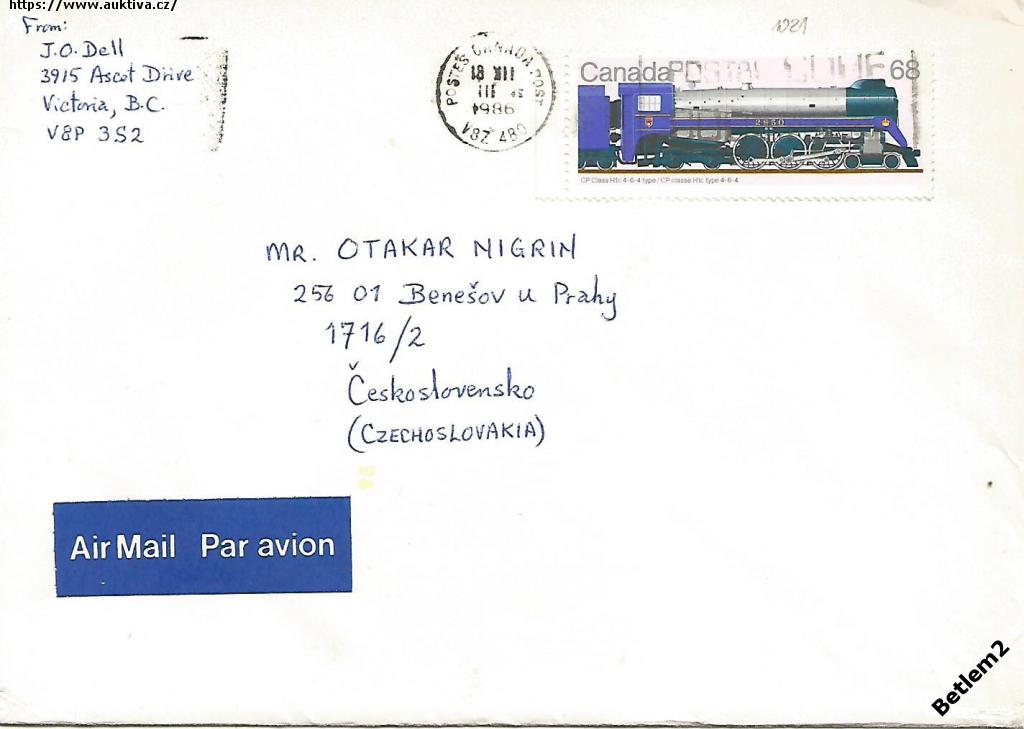 https://www.auktiva.cz/
From:
J.O. Dell
3915 Ascot Drive
Victoria, B.C.
V8P 3S2
POSTES CANADA POST
1986
V8Z 4B0
1021
Canada 68
POSTAL CODE
2850
CP Class H1c 4-6-4 type / CP classe H1c type 4-6-4
MR. OTAKAR NIGRIN
256 01 Benešov u Prahy
1716/2
Československo
(CZECHOSLOVAKIA)
Air Mail Par avion
Betlem2